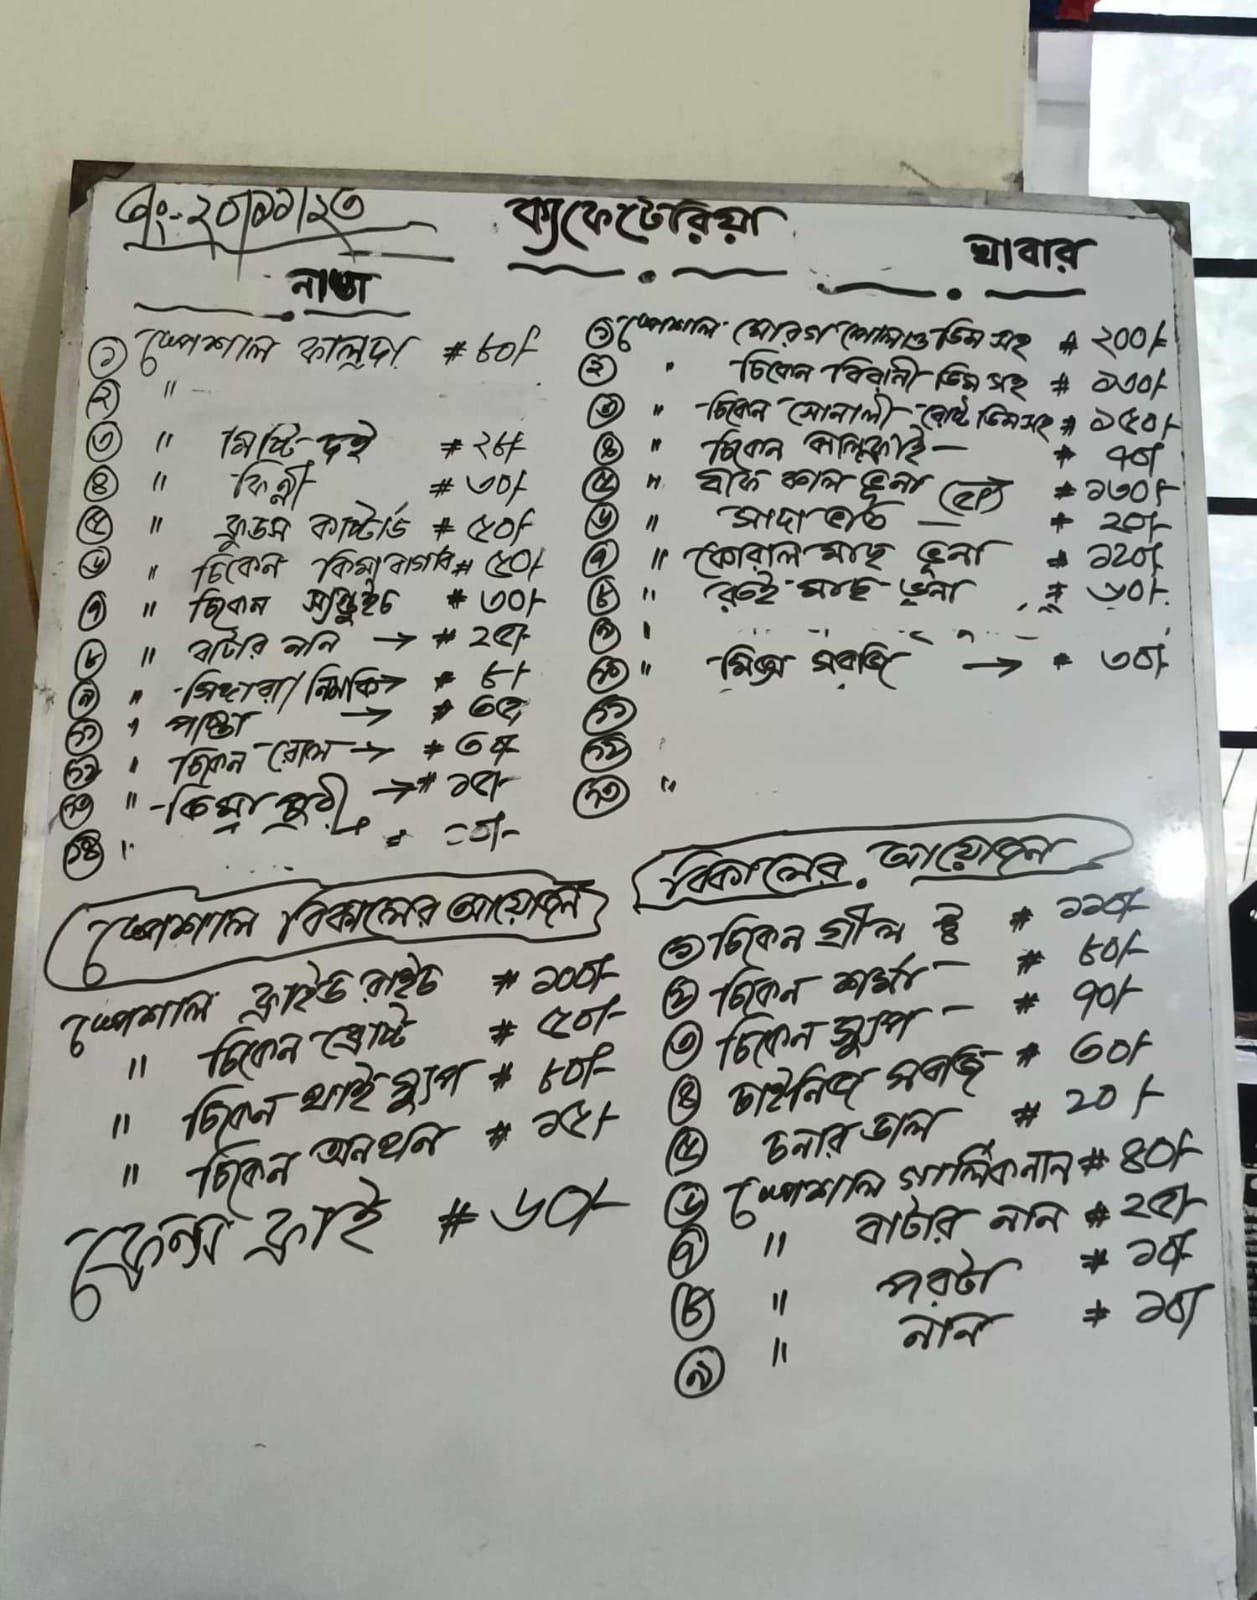 ক্যাফেটেরিয়া
নাস্তা
১ স্পেশাল ফালুদা # ৮০/-
২ "
৩ " মিষ্টি দই # ২৮/-
৪ " ফিন্নী # ৩০/-
৫ " ফ্রুডস কাষ্টার্ড # ৫০/-
৬ " চিকেন কিমা বার্গার # ৫০/-
৭ " চিকেন স্যান্ডুইচ # ৩০/-
৮ " বাটার নান → # ২৫/-
৯ " সিঙ্গারা/নিমকি → # ৮/-
১১ " পাস্তা → #
১২ " চিকেন রোল → #
১৩ " কিমা পুরী → # ১৫/-
১৪ "
স্পেশাল বিকালের আয়োজন
স্পেশাল ফ্রাইড রাইচ # ১০০/-
" চিকেন # ৫০/-
" চিকেন থাই স্যুপ # ৮০/-
" চিকেন অনথন # ১৫/-
ফ্রেন্স ফ্রাই # ৬০/-
খাবার
১ স্পেশাল মোরগ পোলাও ডিম সহ # ২০০/-
২ " চিকেন বিরানী ডিম সহ # ১৩০/-
৩ " চিকেন সোনালী রোষ্ট ডিম সহ # ১৫০/-
৪ " চিকেন ঝালফ্রাই - # ৭০/-
৫ " বীফ কাল ভূনা # ১৩০/-
৬ " সাদা ভাত - # ২০/-
৭ " কোরাল মাছ ভূনা # ১২০/-
৮ " রুই মাছ ভূনা #
৯ "
১০ " মিক্স সবজি → # ৩০/-
১১
১২ "
১৩ "
বিকালের আয়োজন
১ চিকেন গ্রীল # ১১০/-
২ চিকেন শর্মা - # ৮০/-
৩ চিকেন স্যুপ - # ৭০/-
৪ চাইনিজ সবজি # ৩০/-
৫ চনার ডাল # ২০/-
৬ স্পেশাল গার্লিক নান # ৪০/-
৭ " বাটার নান # ২৫/-
৮ " পরটা # ১০/-
৯ " নান # ১০/-